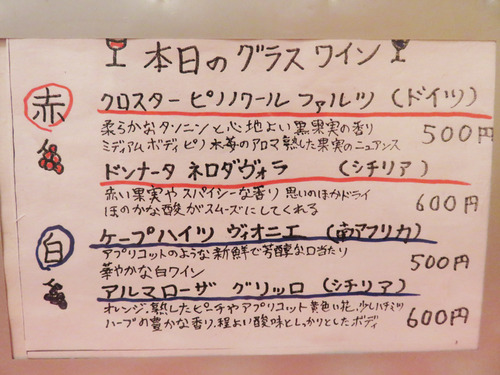 本日のグラスワイン
赤
クロスター ピノノワール ファルツ (ドイツ)
柔らかなタンニンと心地よい黒果実の香り
ミディアムボディ ピノ 木苺のアロマ 熟した果実のニュアンス
500円
ドンナータ ネロダヴォラ (シチリア)
赤い果実や スパイシーな香り 思いのほかドライ
ほのかな酸がスムーズにしてくれる
600円
白
ケープハイツ ヴィオニエ (南アフリカ)
アプリコットのような新鮮で芳醇な口当たり
華やかな白ワイン
500円
アルマローザ グリッロ (シチリア)
オレンジ、熟したピーチやアプリコット 黄色い花、少しハチミツ
ハーブの豊かな香り、程よい酸味としっかりとしたボディ
600円